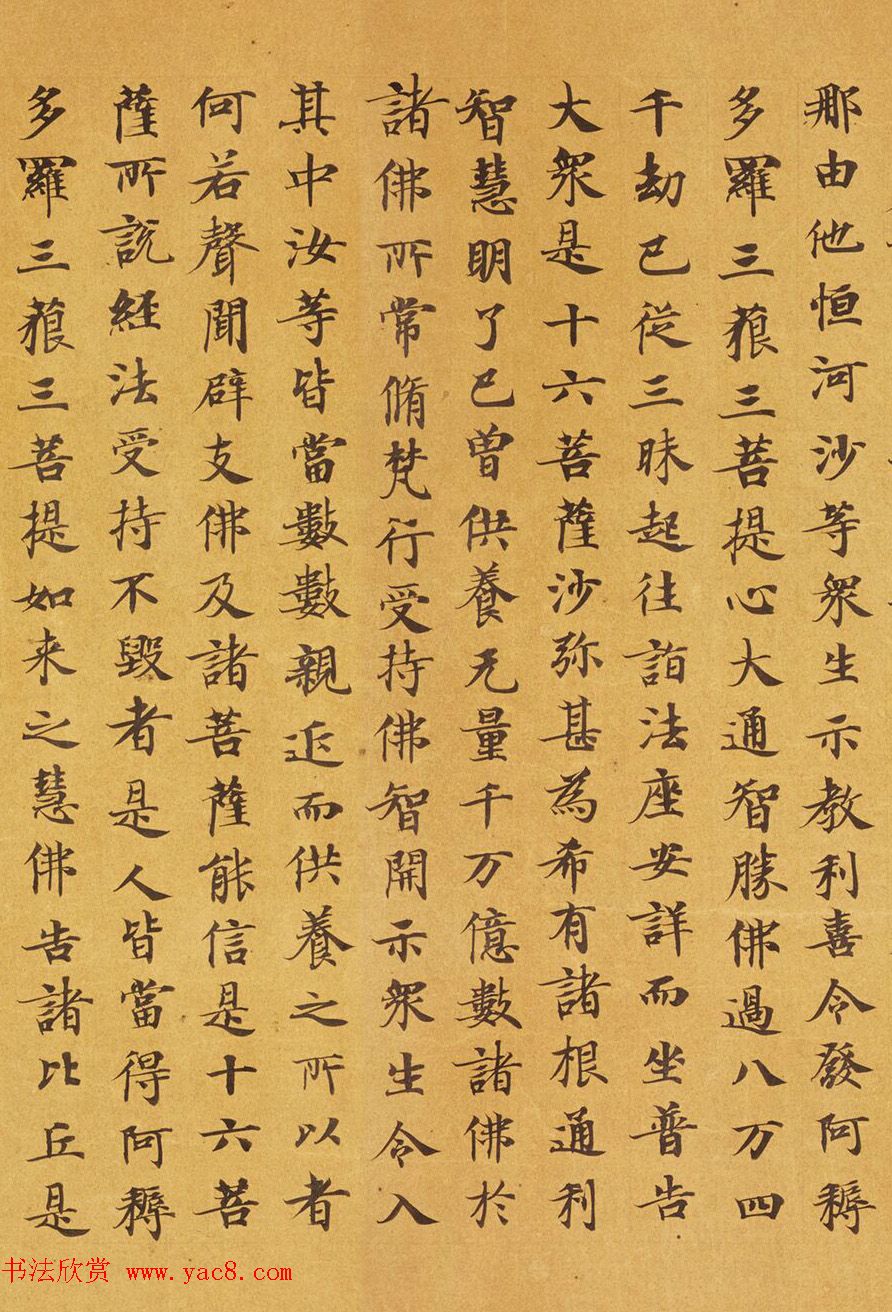 那由他恒河沙等衆生示教利喜令發阿耨
多羅三藐三菩提心大通智勝佛過八万四
千劫已從三昧起往詣法座安詳而坐普告
大衆是十六菩薩沙弥甚為希有諸根通利
智慧明了已曾供養无量千万億數諸佛於
諸佛所常脩梵行受持佛智開示衆生令入
其中汝等皆當數數親近而供養之所以者
何若聲聞辟支佛及諸菩薩能信是十六菩
薩所說經法受持不毀者是人皆當得阿耨
多羅三藐三菩提如来之慧佛告諸比丘是
书法欣赏 www.yac8.com